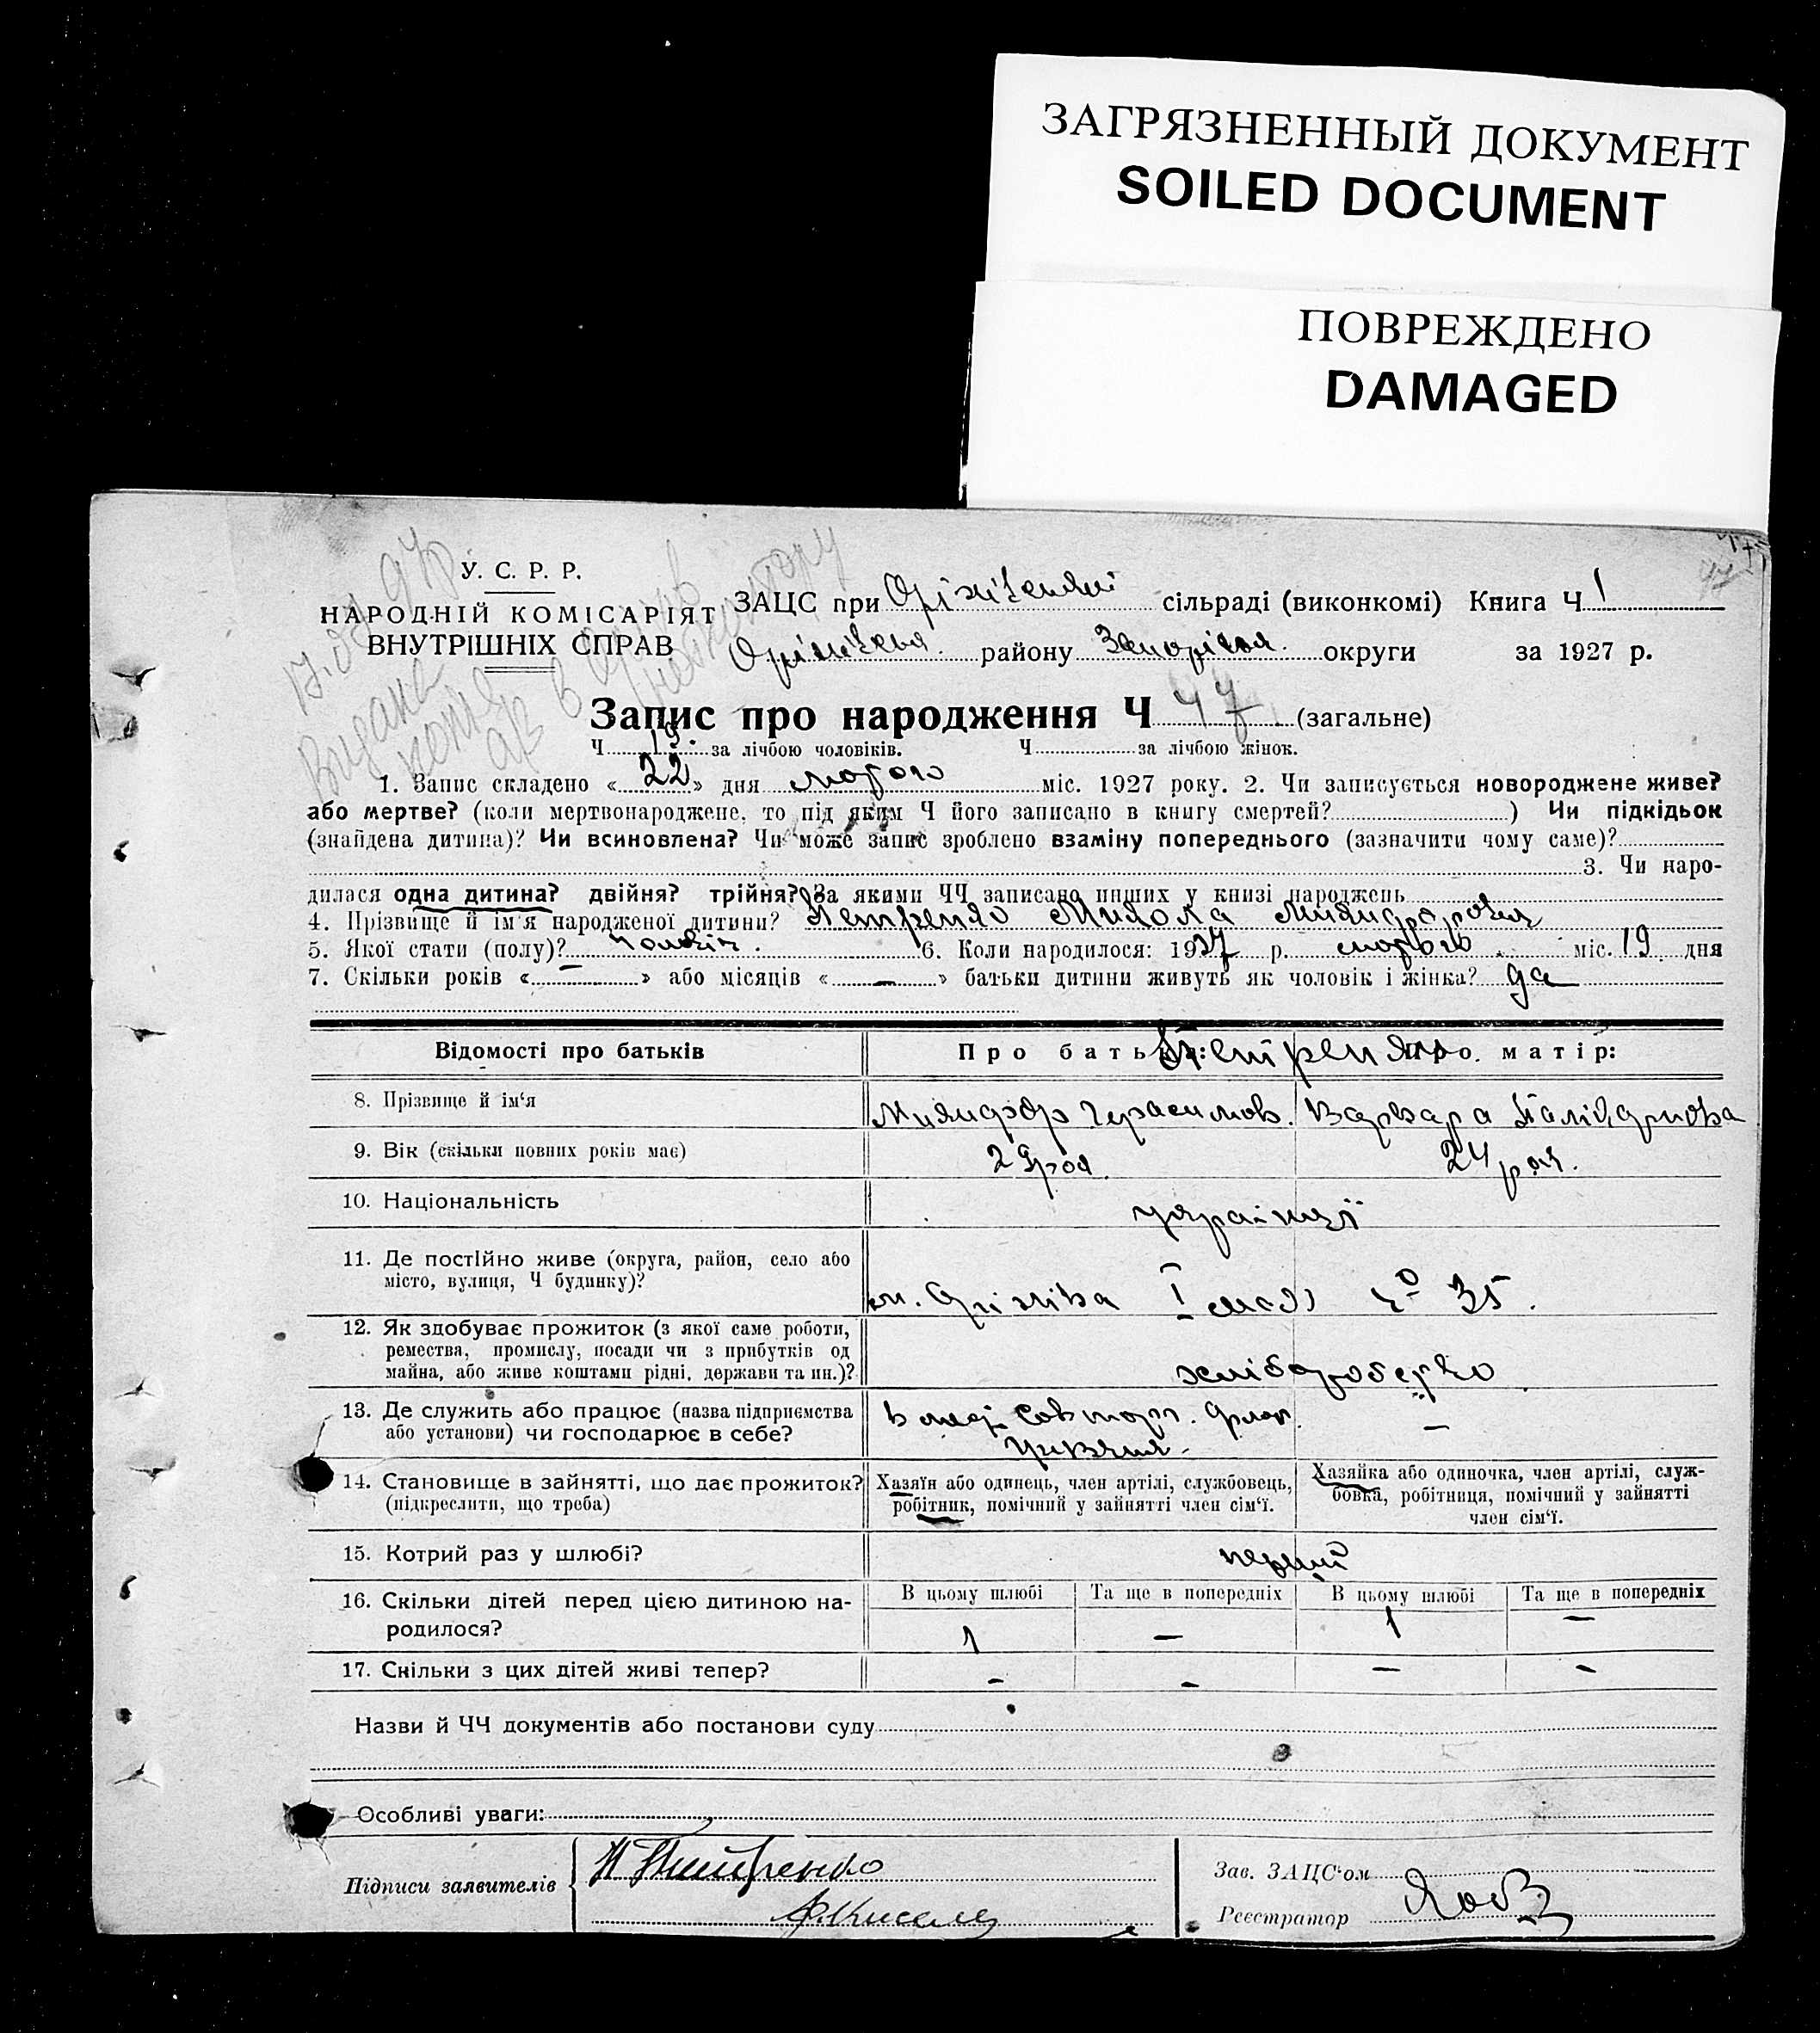 ЗАГРЯЗНЕННЫЙ ДОКУМЕНТ
SOILED DOCUMENT
ПОВРЕЖДЕНО
DAMAGED
У. С. Р. Р.
НАРОДНІЙ КОМІСАРІЯТ
ВНУТРІШНІХ СПРАВ
ЗАЦС при сільраді (виконкомі) Книга Ч 1
району округи за 1927 р.
Видана
Запис про народження Ч 47 (загальне)
Ч 19. за лічбою чоловіків. Ч за лічбою жінок.
1. Запис складено « 22 » дня лютого міс. 1927 року. 2. Чи записується новороджене живе?
або мертве? (коли мертвонароджене, то під яким Ч його записано в книгу смертей? ) Чи підкідьок
(знайдена дитина)? Чи всиновлена? Чи може запис зроблено взаміну попереднього (зазначити чому саме)?
3. Чи наро-
дилася одна дитина? двійня? трійня? За якими ЧЧ записано инших у книзі народжень
4. Прізвище й ім'я народженої дитини? Петренко Микола Никандрович
5. Якої стати (полу)? чоловіч. 6. Коли народилося: 1927 р. лютого міс. 19 дня
7. Скільки років « – » або місяців « – » батьки дитини живуть як чоловік і жінка? да
Відомості про батьків
Про батька: Про матір:
Петренко
8. Прізвище й ім'я
Никандр Герасимов. Варвара
9. Вік (скільки повних років має)
29 рок. 24 рок.
10. Національність
українці
11. Де постійно живе (округа, район, село або
місто, вулиця, Ч будинку)?
м. Оріхів I № 35.
12. Як здобуває прожиток (з якої саме роботи,
ремества, промислу, посади чи з прибутків од
майна, або живе коштами рідні, держави та ин.)?
хліборобство
13. Де служить або працює (назва підприємства
або установи) чи господарює в себе?
–
14. Становище в зайнятті, що дає прожиток?
(підкреслити, що треба)
Хазяїн або одинець, член артілі, службовець,
робітник, помічний у зайнятті член сім'ї.
Хазяйка або одиночка, член артілі, служ-
бовка, робітниця, помічний у зайнятті
член сім'ї.
15. Котрий раз у шлюбі?
перший
16. Скільки дітей перед цією дитиною на-
родилося?
В цьому шлюбі Та ще в попередніх В цьому шлюбі Та ще в попередніх
1 – 1 –
17. Скільки з цих дітей живі тепер?
– – – –
Назви й ЧЧ документів або постанови суду
Особливі уваги:
Підписи заявителів
Зав. ЗАЦС'ом
Реєстратор